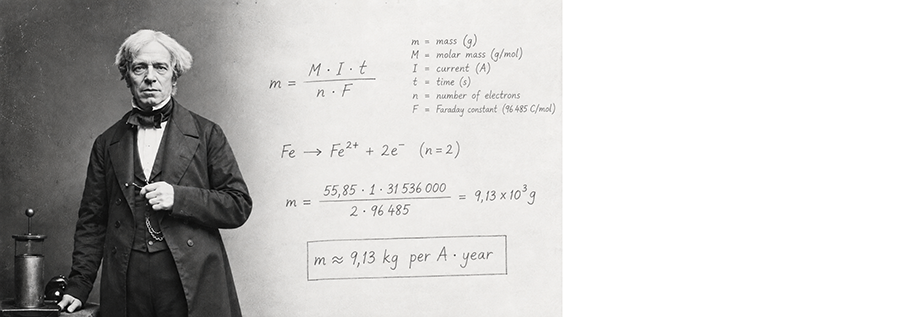 m = M · I · t / n · F
m = mass (g)
M = molar mass (g/mol)
I = current (A)
t = time (s)
n = number of electrons
F = Faraday constant (96 485 C/mol)
Fe → Fe²⁺ + 2e⁻ (n = 2)
m = 55,85 · 1 · 31 536 000 / 2 · 96 485 = 9,13 x 10³ g
m ≈ 9,13 kg per A · year